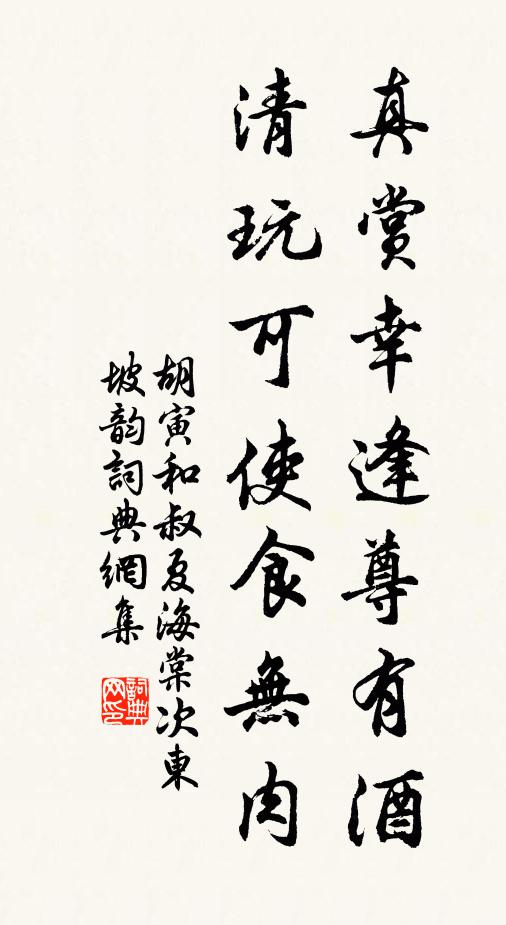 真賞幸逢尊有酒
清玩可使食無肉
胡寅和叔夏海棠次東
坡韵詞典網集
詞典
网印